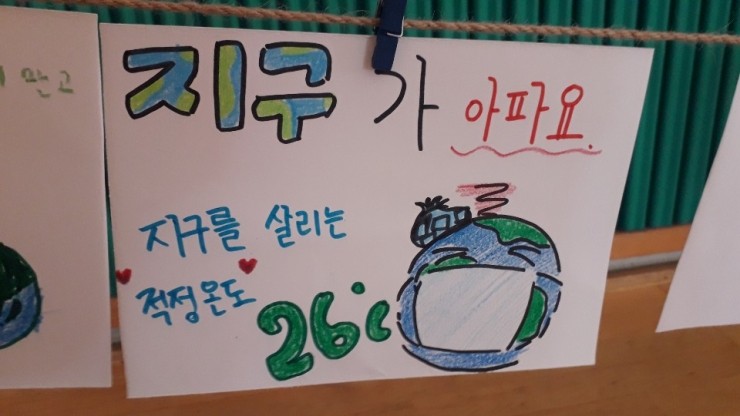 지구가 아파요.
지구를 살리는
적정온도
26°c
만고